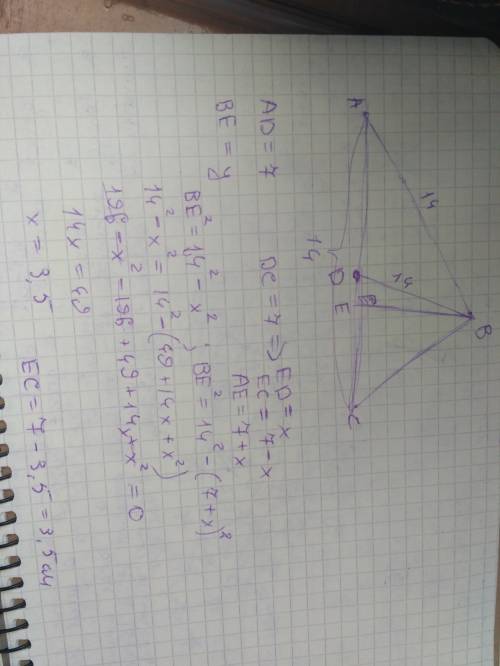 B
14
14
A
D
E
C
14
AD = 7 DC = 7 => ED = x
EC = 7 - x
AE = 7 + x
BE = y
BE² = 14² - x² ; BE² = 14² - (7+x)²
14² - x² = 14² - (49 + 14x + x²)
196 - x² - 196 + 49 + 14x + x² = 0
14x = 49
x = 3,5 EC = 7 - 3,5 = 3,5 см